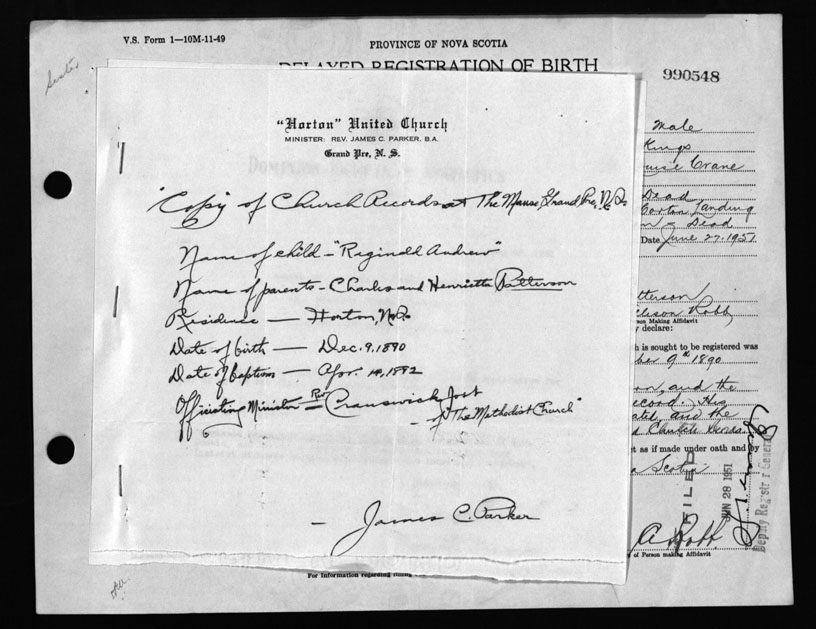 V.S. Form 1—10M-11-49
PROVINCE OF NOVA SCOTIA
DELAYED REGISTRATION OF BIRTH
990548
Sister
"Horton" United Church
MINISTER: REV. JAMES C. PARKER, B.A.
Grand Pre, N. S.
"Copy of Church Records at The Manse, Grand Pre, N.S.
Name of child - "Reginald Andrew"
Name of parents - Charles and Henrietta Patterson
Residence — Horton, N.S.
Date of birth — Dec. 9, 1890
Date of baptism — Apr. 14, 1892
Officiating Minister - Rev Cranswick Jost
- of "The Methodist Church"
- James C. Parker
Male
Kings
Crane
Dead
Horton Landing
Dead
Date June 27, 1951
tterson
Robb
son Making Affidavit
y declare:
h is sought to be registered was
ber 9th 1890
on, and the
ecord. His
and the
ct as if made under oath and by
a Scotia
FILED
JUN 28 1951
Deputy Registrar General
A Robb
of Person making Affidavit
For Information regarding filing